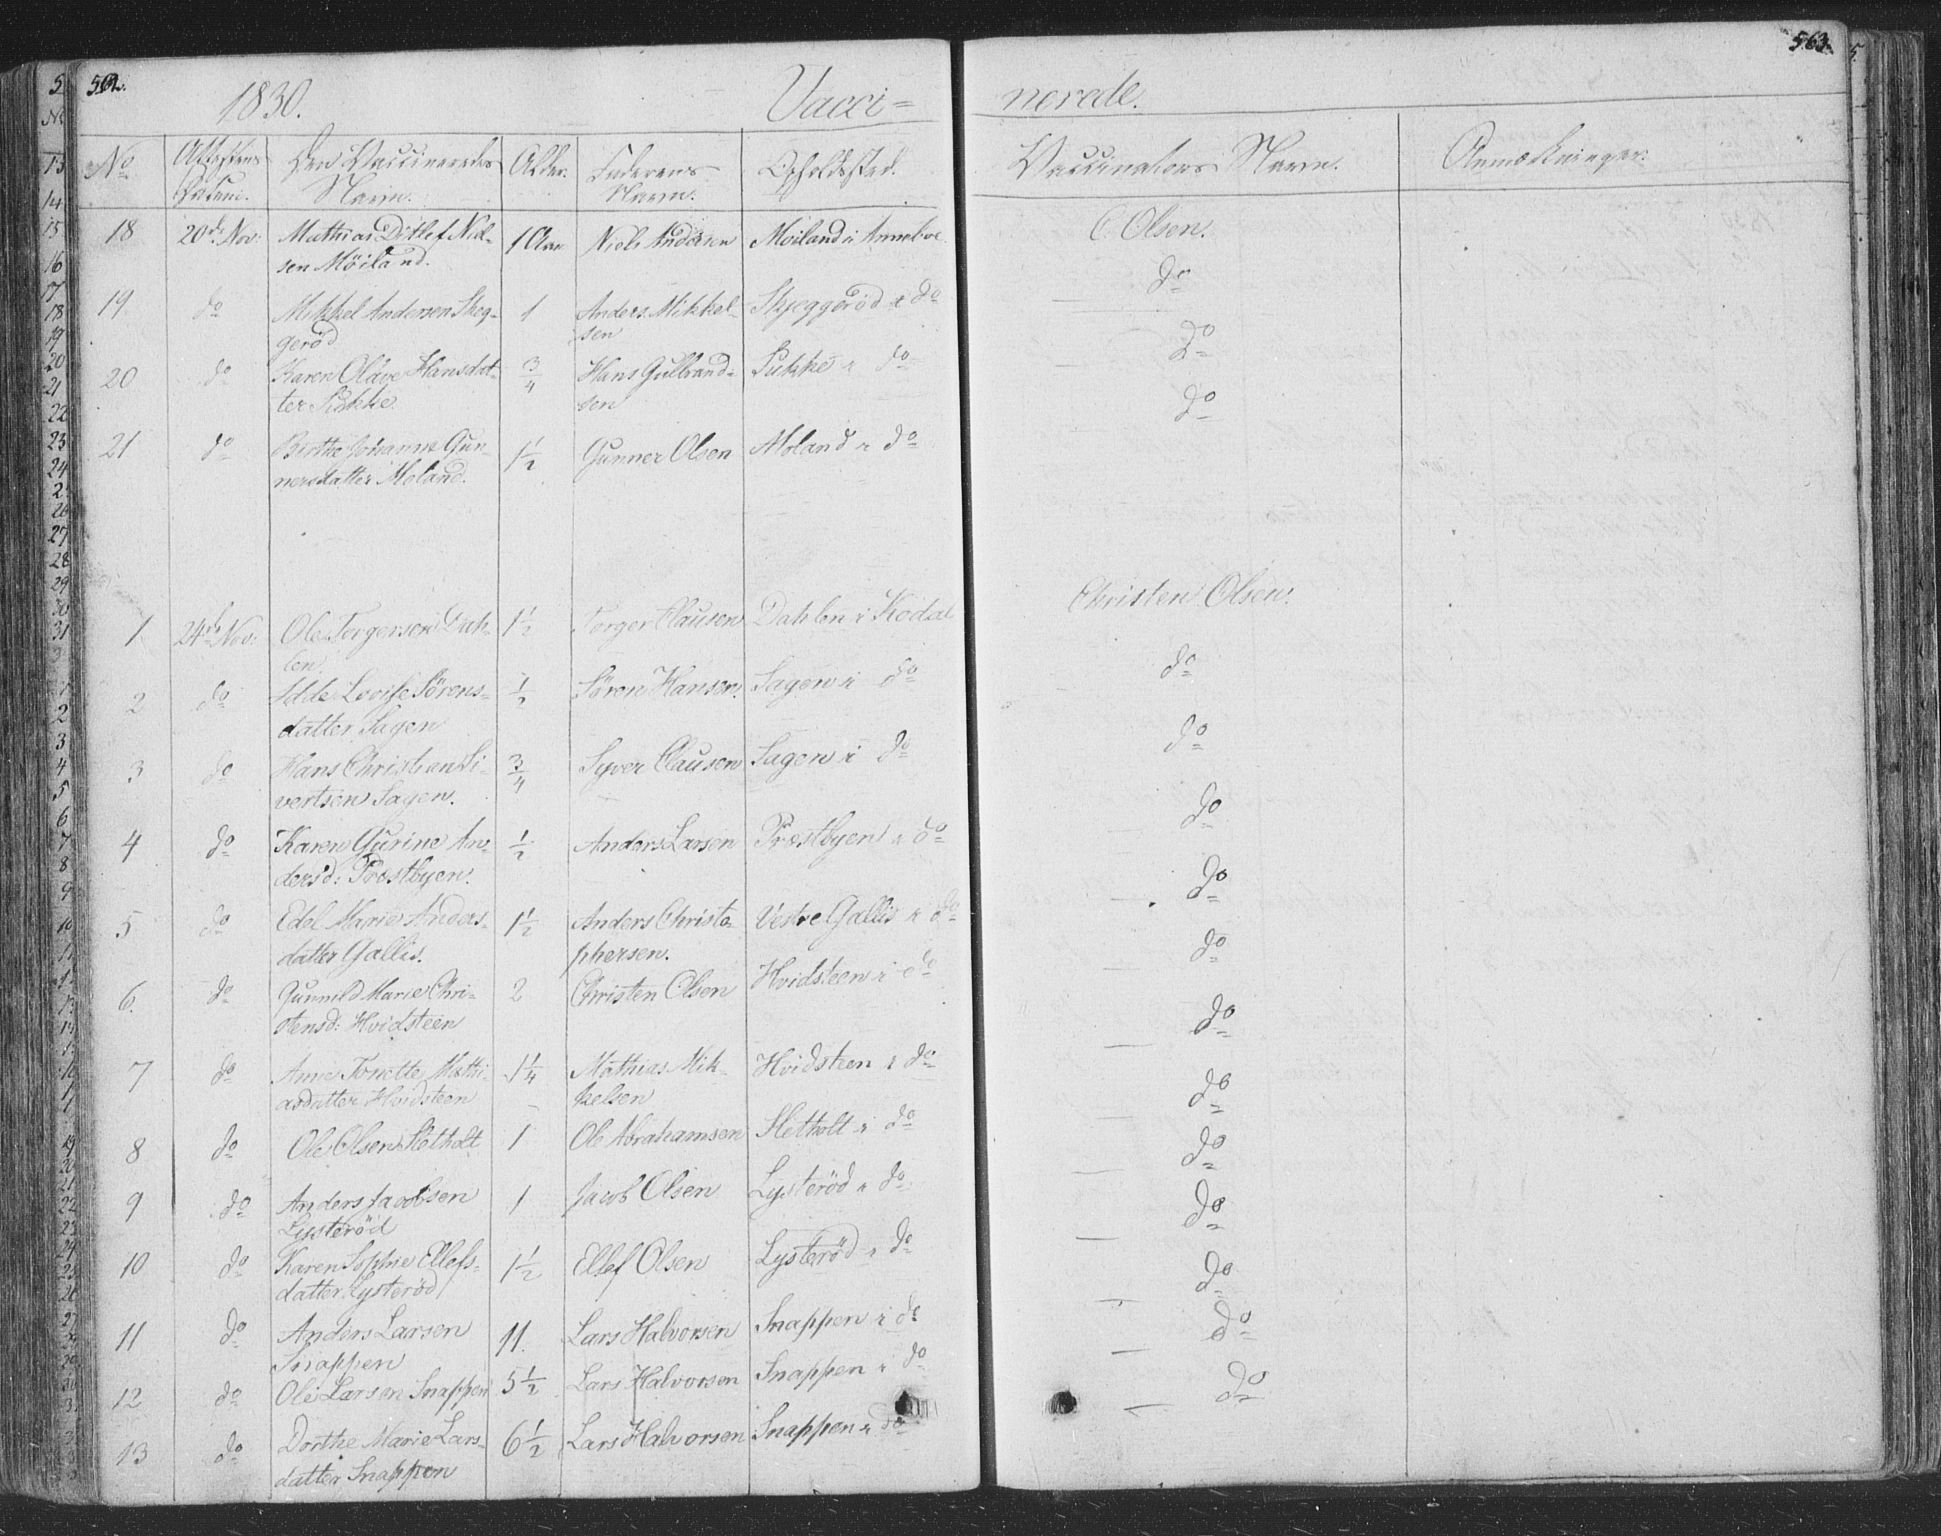 562.
563.
1830.
Vacci=
nerede.
No
Attestens Datum.
Den Vaccineredes Navn.
Alder.
Faderens Navn.
Opholdssted.
Vaccinateurs Navn.
Anmærkninger.
18 20de Nov: Mathias Ditlef Niel- 1 Aar Niels Andersen Möiland i C. Olsen.
sen Möiland.
19 do Mikkel Andersen Skeg- 1 Anders Mikkel- Skjeggeröd i do do
geröd sen
20 do Karen Olave Hansdat- 3/4 Hans Gulbrand- Sukke i do do
ter Sukke. sen
21 do Birthe Johanne Gun- 1 1/2 Gunner Olsen Moland i do do
nersdatter Moland.
1 24de Nov: Ole Torgersen Dah- 1 1/2 Torger Clausen Dahlen i Kodal Christen Olsen.
len
2 do Idde Lovise Sörens- 1/2 Sören Hansen Sagen i do do
datter Sagen
3 do Hans Christian Si- 3/4 Syver Clausen Sagen i do do
vertsen Sagen.
4 do Karen Gurine An- 1/2 Anders Larsen Prestbyen i do do
dersd: Prestbyen.
5 do Edel Marie Anders- 1 1/2 Anders Christo- Vestre Gallis i do do
datter Gallis. phersen.
6. do Gunnild Marie Chri- 2 Christen Olsen Hvidsteen i do do
stensd: Hvidsteen
7 do Anne Tonette Mathi- 1 1/4 Mathias Mik- Hvidsteen i do do
asdatter Hvidsteen kelsen
8 do Ole Olsen Sletholt 1 Ole Abrahamsen Sletholt i do do
9 do Anders Jacobsen 1 Jacob Olsen Lysteröd i do do
Lysteröd
10 do Karen Sophie Ellefs- 1 1/2 Ellef Olsen Lysteröd i do do
datter Lysteröd
11 do Anders Larsen 11. Lars Halvorsen Snappen i do do
Snappen
12 do Ole Larsen Snappen 5 1/2 Lars Halvorsen Snappen i do do
13 do Dorthe Marie Lars- 6 1/2 Lars Halvorsen Snappen i do do
datter Snappen